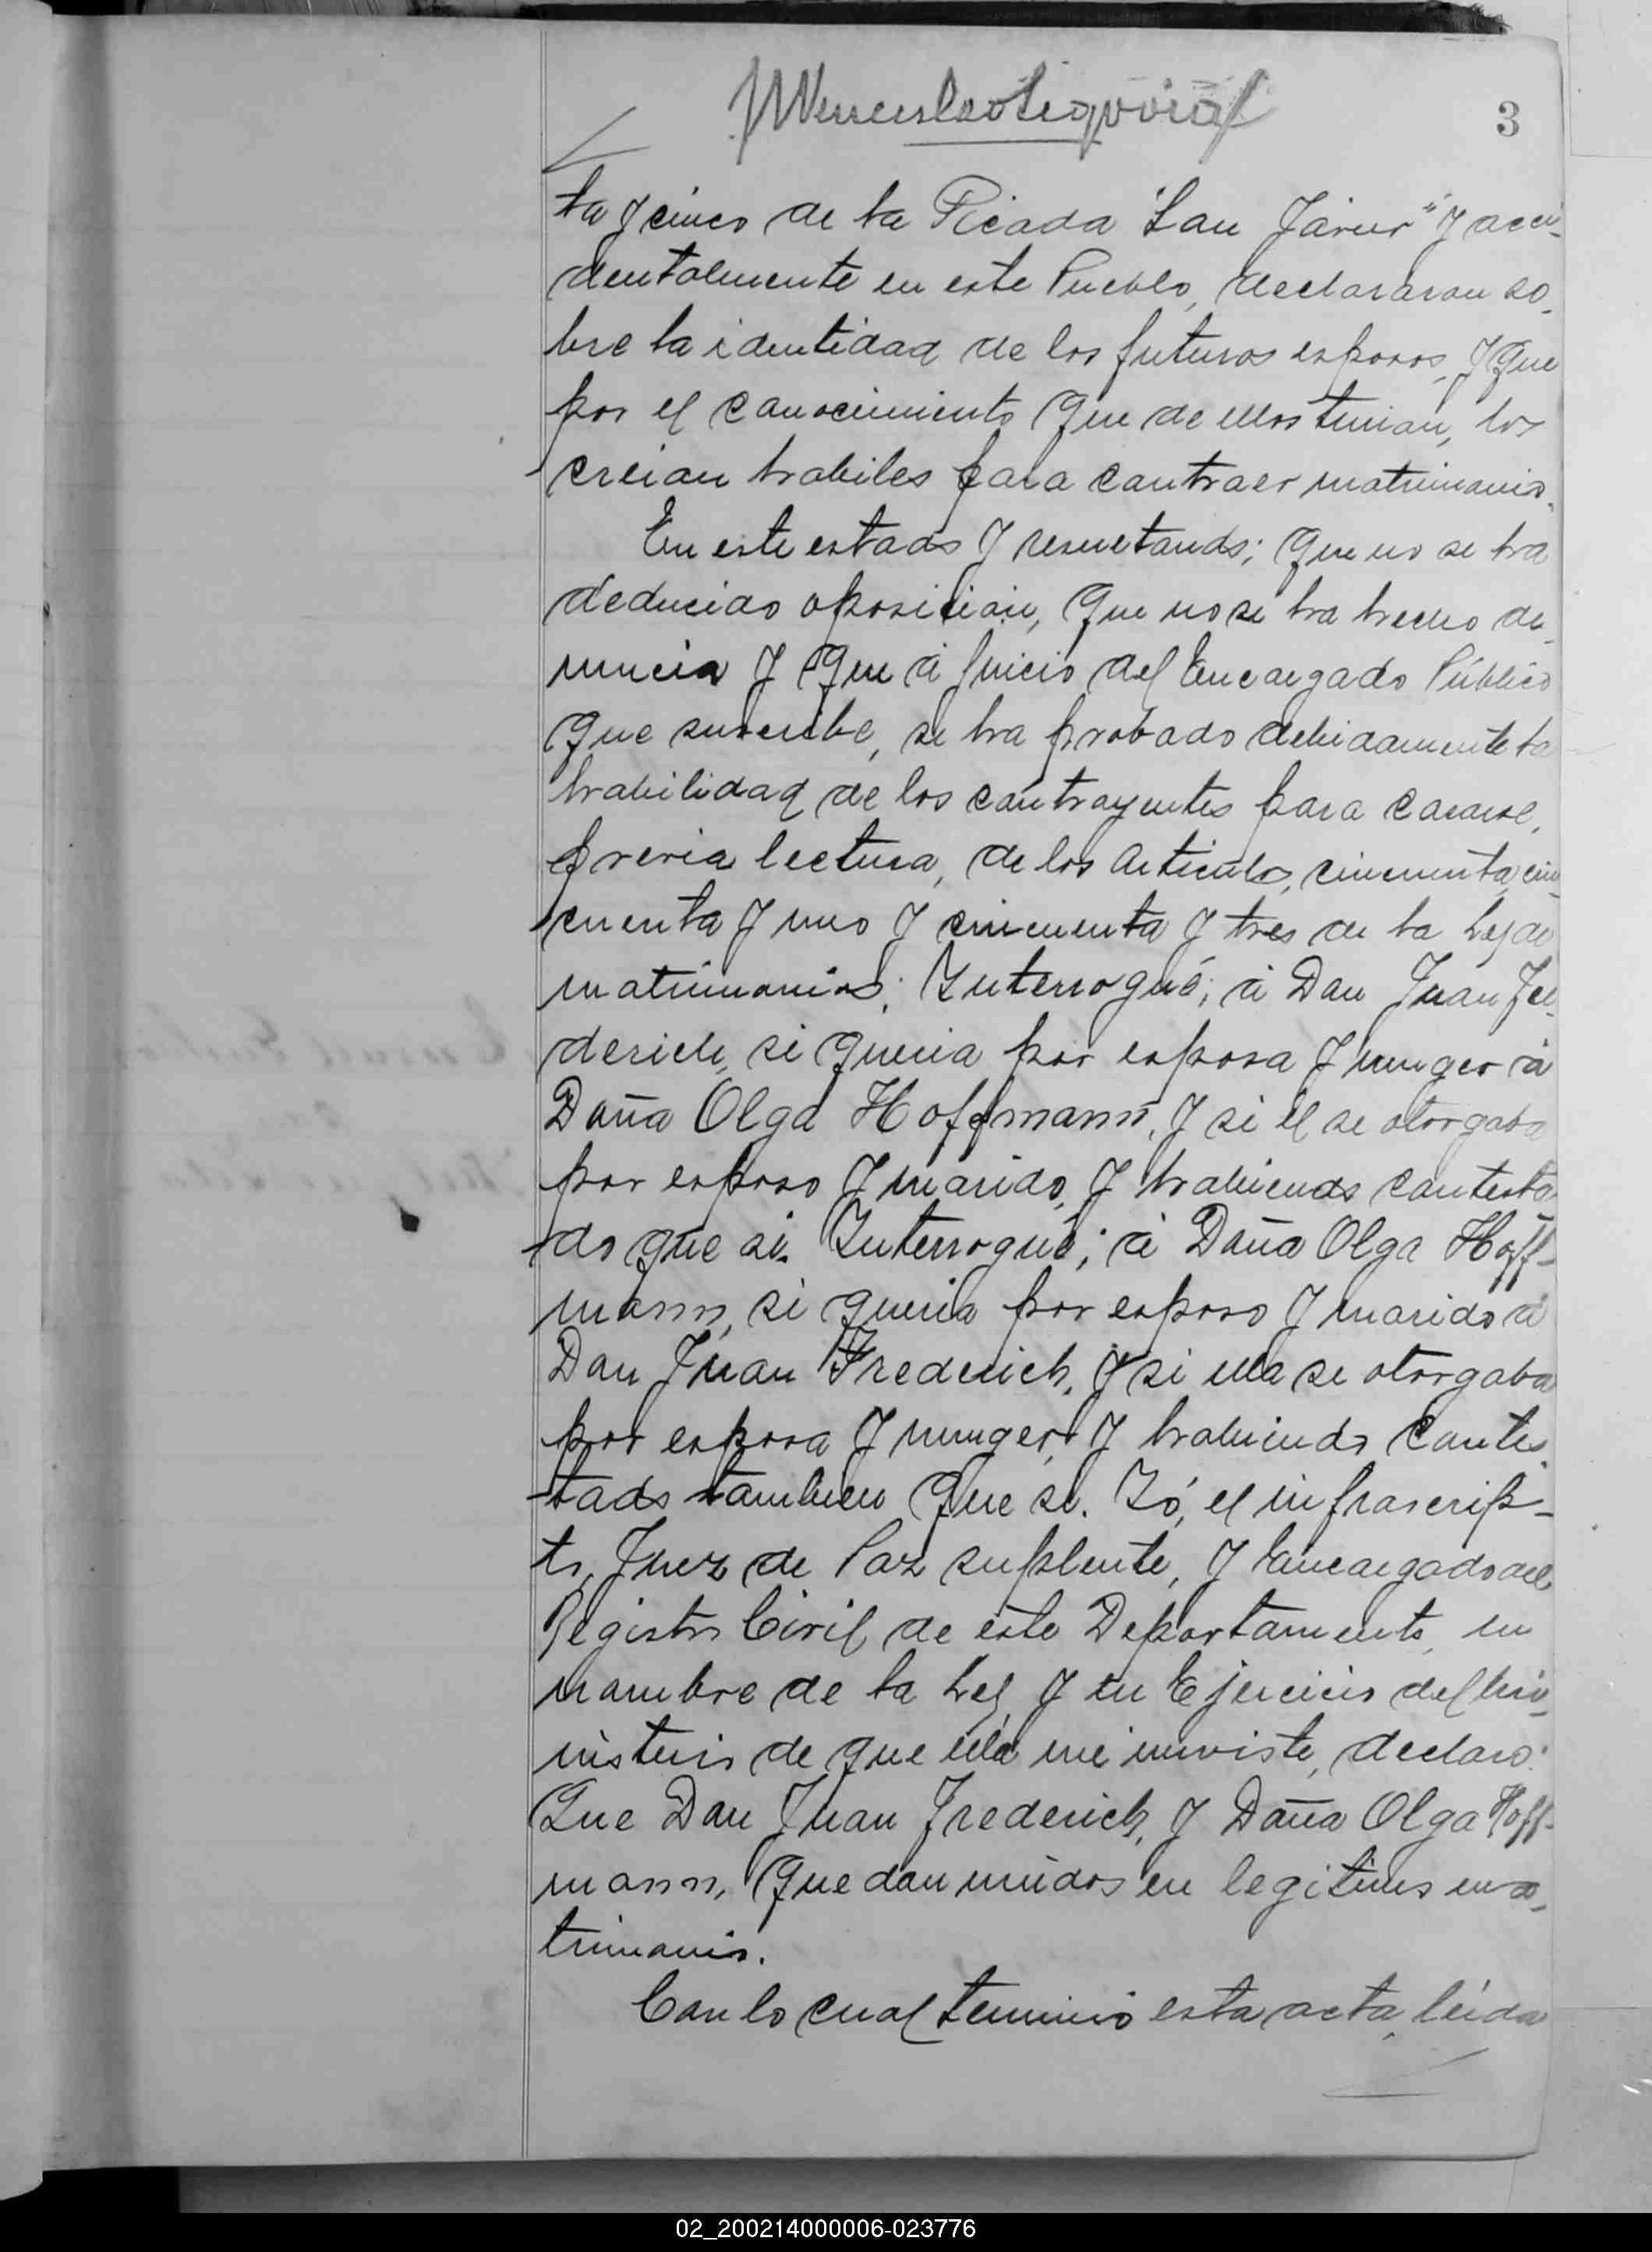 3
ta y cinco de la Picada "San Javier" y acci-
dentalmente en este Pueblo, declararon so-
bre la identidad de los futuros esposos, y que
por el conocimiento que de ellos tenian, los
creian habiles para contraer matrimonio.
En este estado y resultando; que no se ha
deducido oposición, que no se ha hecho de-
nuncia y que á juicio del Encargado Público
que suscribe, se ha probado debidamente la
habilidad de los contrayentes para casarse,
previa lectura, de los articulos, cincuenta, cin-
cuenta y uno y cincuenta y tres de la Ley de
matrimonios; Interrogué; á Don Juan Fe-
derich, si queria por esposa y muger á
Doña Olga Hoffmann, y si él se otorgaba
por esposo y marido, y habiendo contesta-
do que si. Interrogué; á Doña Olga Hoff-
mann, si queria por esposo y marido á
Don Juan Frederich, y si ella se otorgaba
por esposa y muger, y habiendo contes-
tado tambien que si. Yó, el infrascrip-
to, Juez de Paz suplente, y Encargado del
Registro Civil de este Departamento, en
nombre de la Ley, y en Ejercicio del mi-
nisterio de que ella me inviste, declaro:
Que Don Juan Frederich, y Doña Olga Hoff-
mann, quedan unidos en legitimo ma-
trimonio.
Con lo cual terminó esta acta, leida
02_200214000006-023776